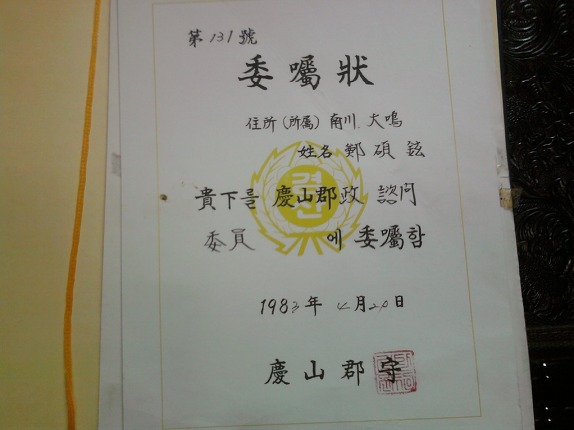 第 131 號
委囑狀
住所 (所属) 角川. 大鳴
姓名 鄭碩鉉
경산
貴下를 慶山郡政 諮問
委員 에 委囑함
1983 年 4 月 20 日
慶山郡守